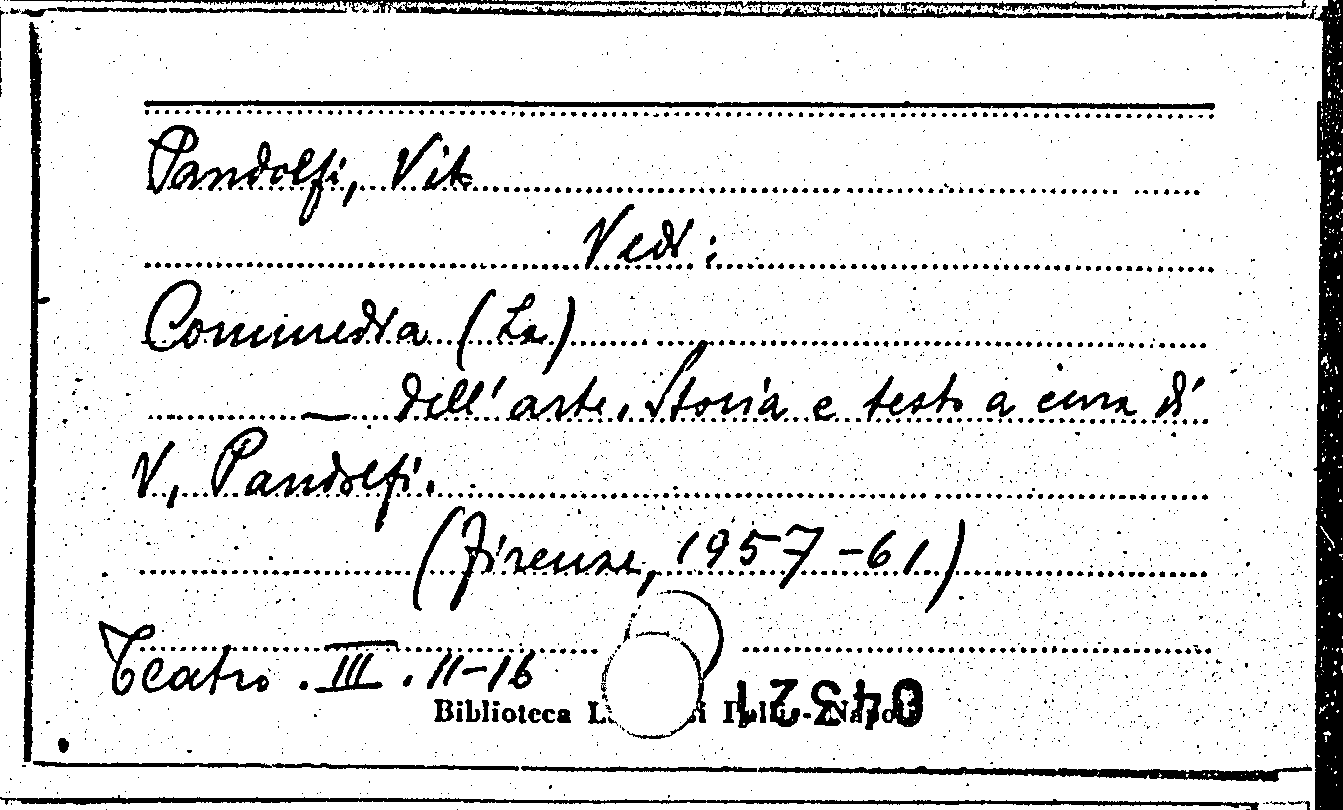 Pandolfi, Vito
Vedi:
Commedia (La)
— dell'arte. Storia e testo a cura di
V. Pandolfi.
(Firenze, 1957-61)
Teatro. III. 11-16
Biblioteca Napoli
04321